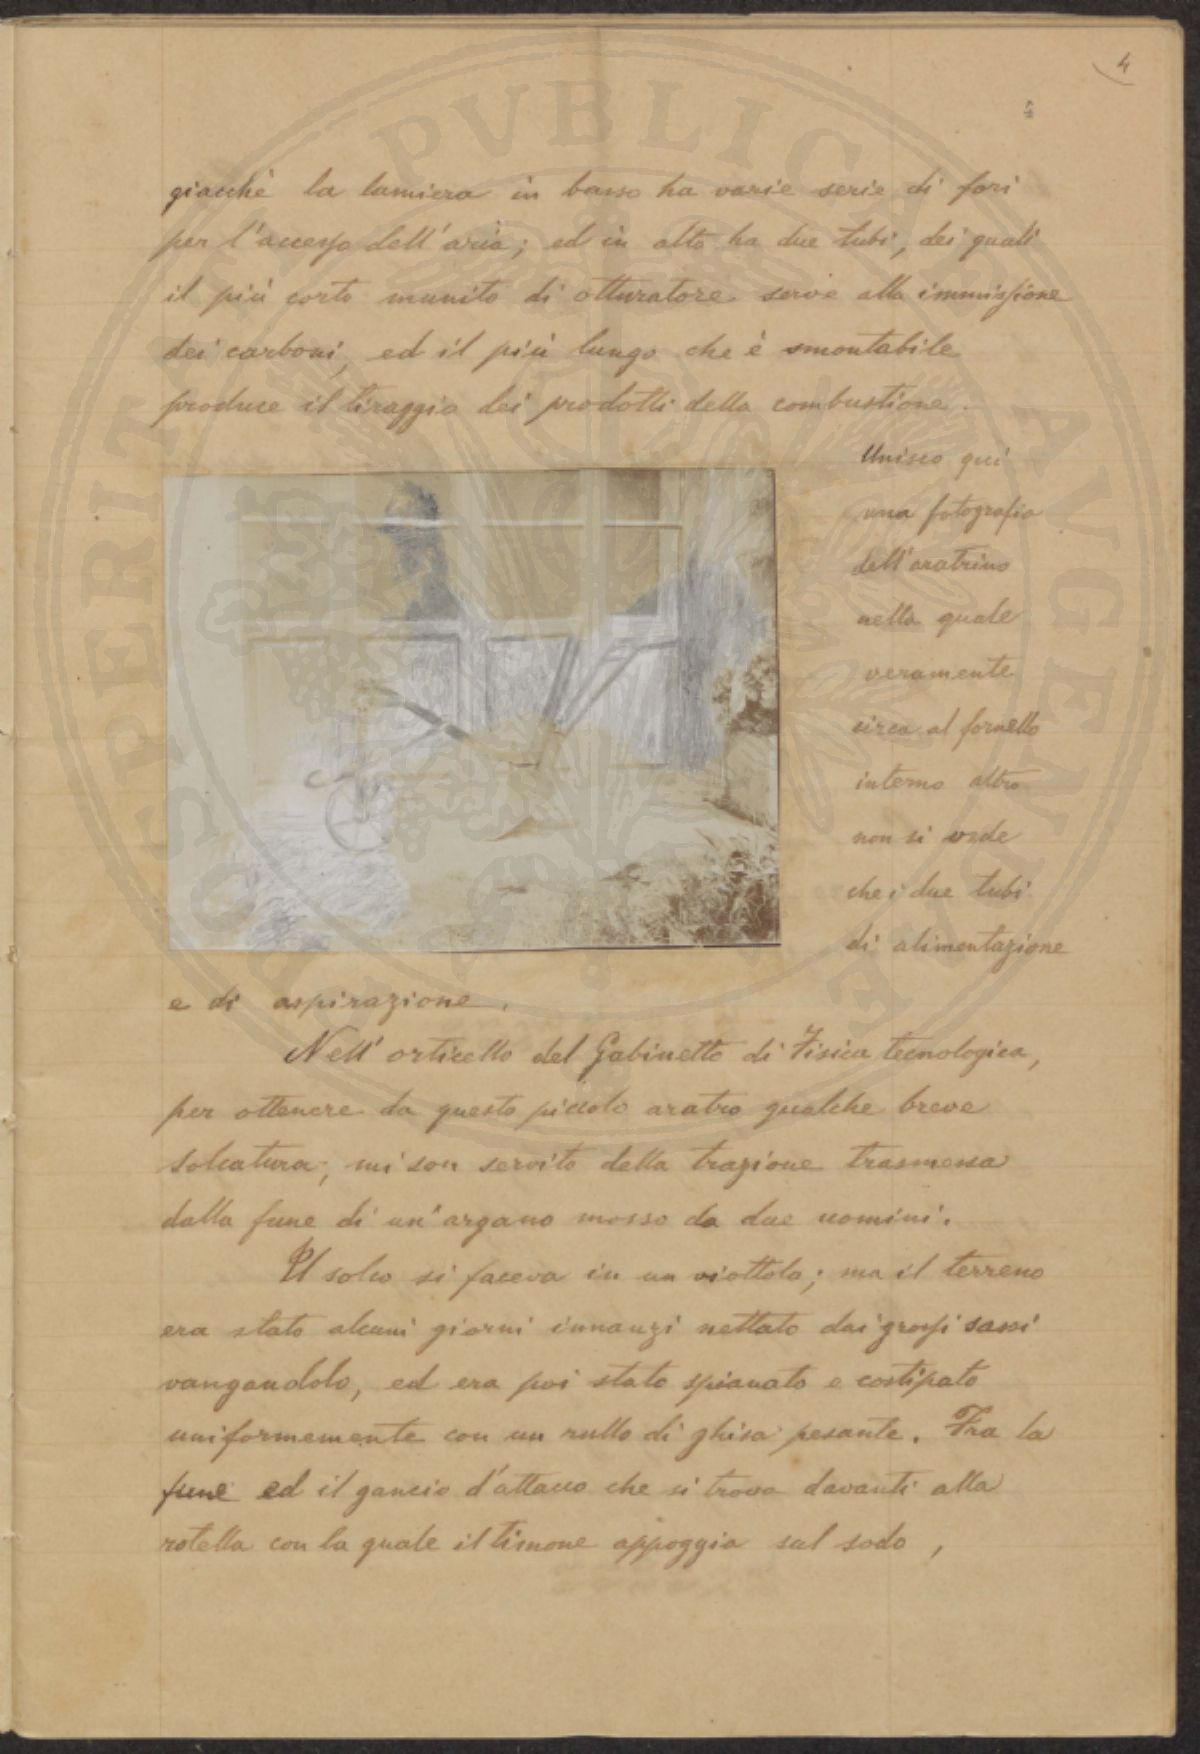 4
4
giacchè la lamiera in basso ha varie serie di fori
per l'accesso dell'aria; ed in alto ha due tubi, dei quali
il più corto munito di otturatore serve alla immissione
dei carboni, ed il più lungo che è smontabile
produce il tiraggio dei prodotti della combustione.
Unisco quì
una fotografia
dell'aratrino
nella quale
veramente
circa al fornello
interno altro
non si vede
che i due tubi
di alimentazione
e di aspirazione.
Nell'orticello del Gabinetto di Fisica tecnologica,
per ottenere da questo piccolo aratro qualche breve
solcatura, mi son servito della trazione trasmessa
dalla fune di un'argano mosso da due uomini.
Il solco si faceva in un viottolo; ma il terreno
era stato alcuni giorni innanzi nettato dai grossi sassi
vangandolo, ed era poi stato spianato e costipato
uniformemente con un rullo di ghisa pesante. Fra la
fune ed il gancio d'attacco che si trova davanti alla
rotella con la quale il timone appoggia sul sodo,
PVBLICAE AVGENDAE PROSPERITATI